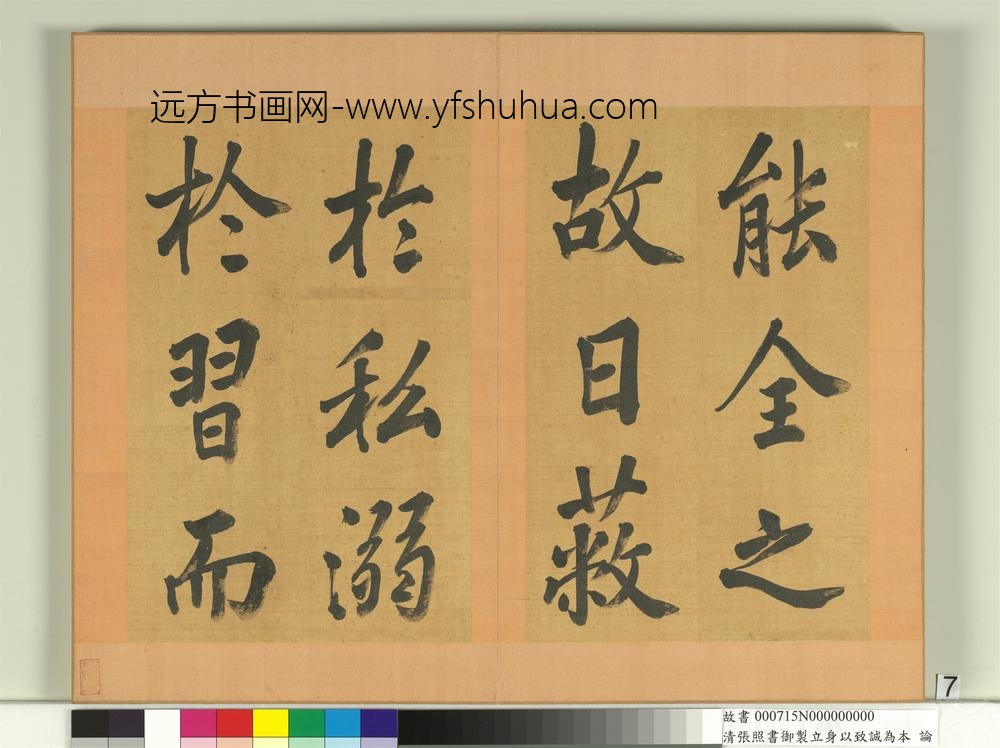 远方书画网-www.yfshuhua.com
能全之
故日蔽
於私溺
於習而
7
故書 000715N000000000
清張照書御製立身以致誠為本 論